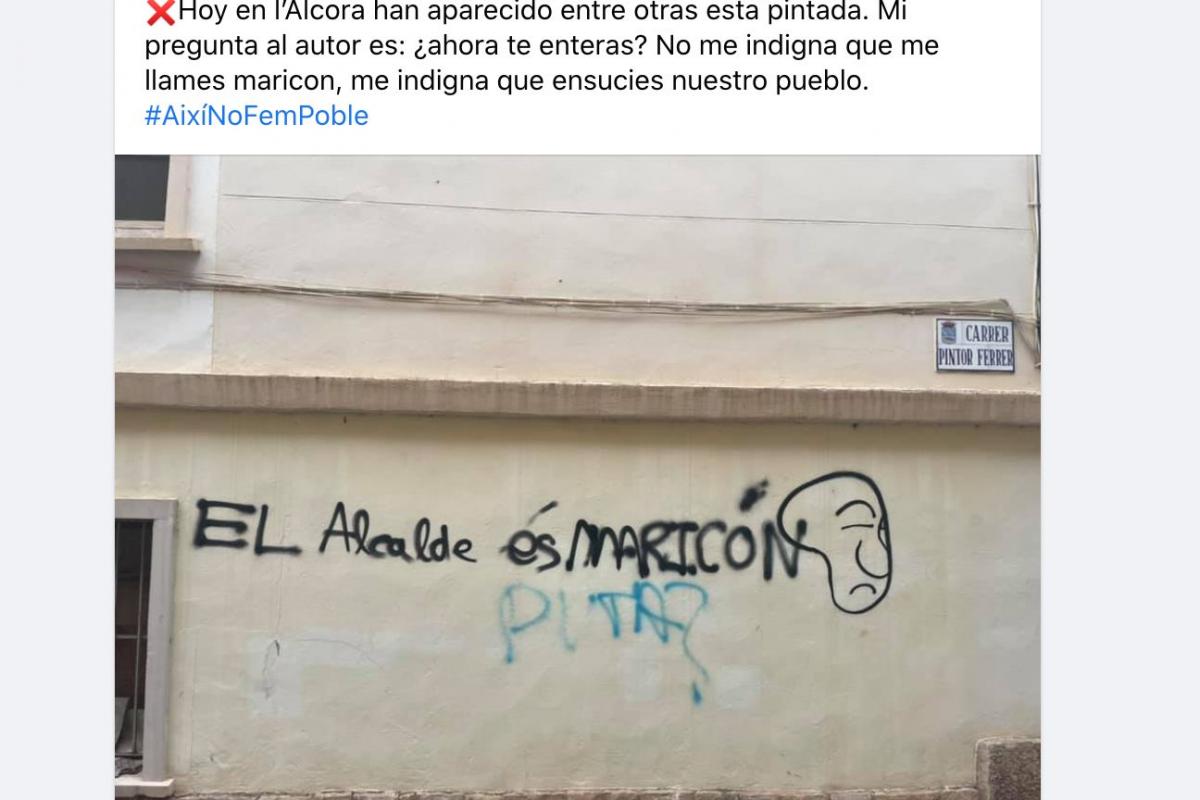 ❌Hoy en l'Alcora han aparecido entre otras esta pintada. Mi
pregunta al autor es: ¿ahora te enteras? No me indigna que me
llames maricon, me indigna que ensucies nuestro pueblo.
#AixíNoFemPoble
CARRER
PINTOR FERRER
EL Alcalde és MARICÓN